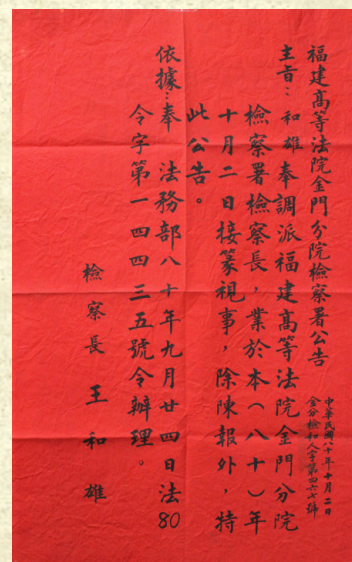 福建高等法院金門分院檢察署公告
中華民國八十年十月二日
金分檢和人字第四六七號
主旨：和雄奉調派福建高等法院金門分院
檢察署檢察長，業於本（八十）年
十月二日接篆視事，除陳報外，特
此公告。
依據：奉 法務部八十年九月廿四日法80
令字第一四四三五號令辦理。
檢察長 王和雄